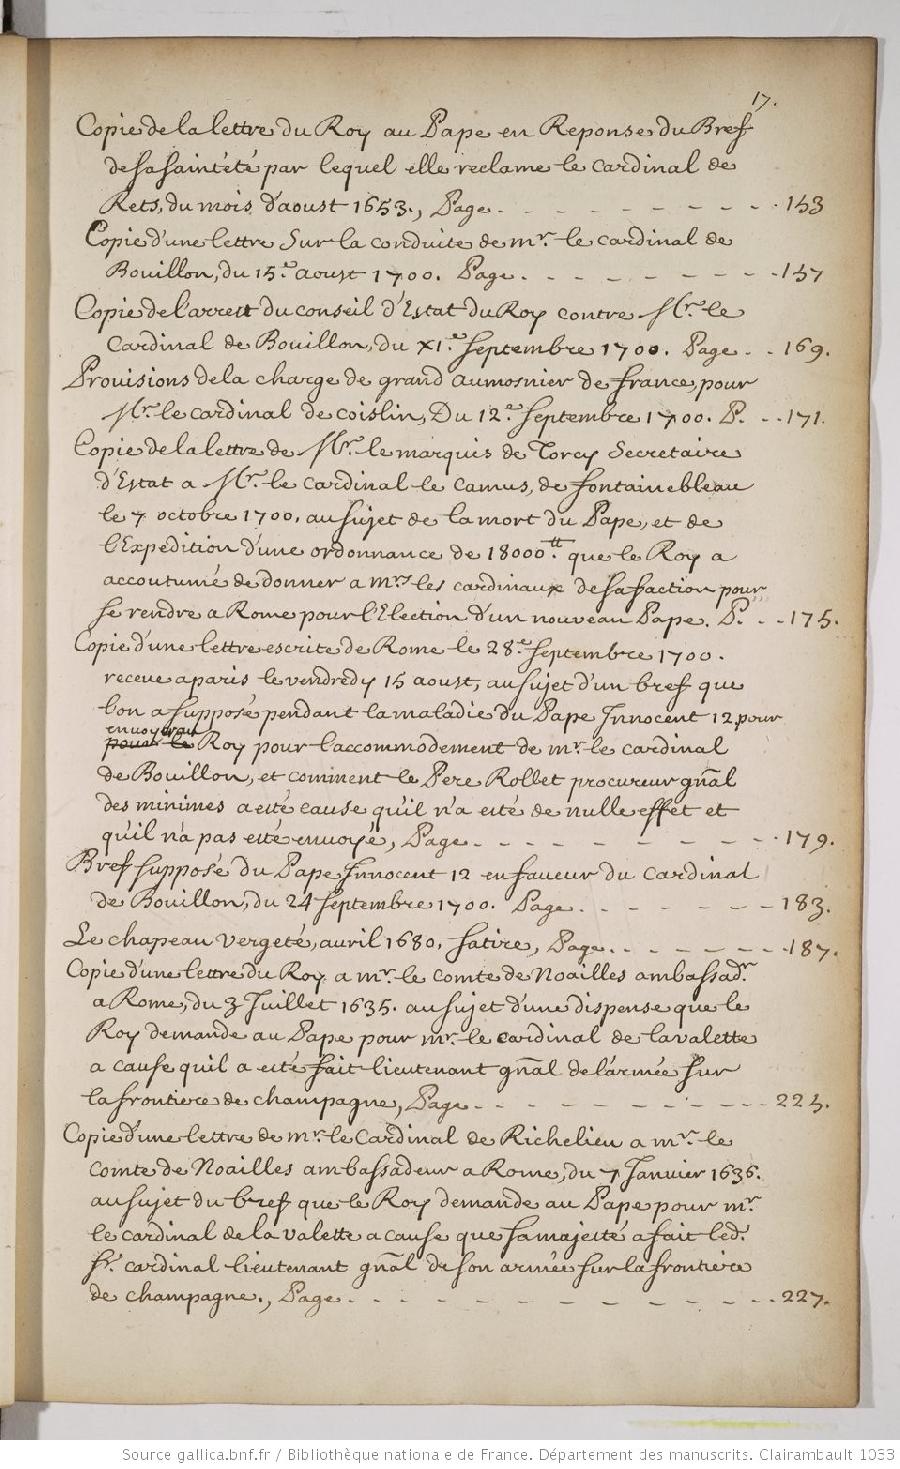 17.
Copie de la lettre du Roy au Pape en Reponse du Bref
de sa sainteté par lequel elle reclame le cardinal de
Rets, du mois d'aoust 1653., Page - - - - - - - - 153
Copie d'une lettre sur la conduite de mr. le cardinal de
Bouillon, du 15e. aoust 1700. Page. - - - - - - - 157
Copie de l'arrest du conseil d'Estat du Roy contre Mr. le
Cardinal de Bouillon, du XIe. septembre 1700. Page - - 169.
Prouisions de la charge de grand aumosnier de france, pour
Mr. le cardinal de coislin, Du 12e. septembre 1700. P. - - 171.
Copie de la lettre de Mr. le marquis de Torcy Secretaire
d'Estat a Mr. le cardinal le camus, de fontainebleau
le 7 octobre 1700. au sujet de la mort du Pape, et de
l'Expedition d'une ordonnance de 18000tt. que le Roy a
accoutumé de donner a mrs. les cardinaux de sa faction pour
se rendre a Rome pour l'Election d'un nouveau Pape. P. - - 175.
Copie d'une lettre escrite de Rome le 28e. septembre 1700.
receue a paris le vendredy 15 aoust, au sujet d'un bref que
l'on a supposé pendant la maladie du Pape Innocent 12, pour
Roy pour l'accommodement de mr. le cardinal
de Bouillon, et comment le Pere Rollet procureur gnãl
des minimes a esté cause qu'il n'a esté de nulle effet et
qu'il n'a pas esté enuoyé, Page - - - - - - - - 179.
Bref supposé du Pape Innocent 12 en faueur du cardinal
de Bouillon, du 24 septembre 1700. Page. - - - - - 183.
Le chapeau vergeté, auril 1680. satire, Page. - - - - - 187.
Copie d'une lettre du Roy a mr. le comte de Noailles ambassadr.
a Rome, du 3 Juillet 1635. au sujet d'une dispense que le
Roy demande au Pape pour mr. le cardinal de la valette
a cause quil a esté fait lieutenant gnãl de l'armée sur
la frontiere de champagne, Page - - - - - - - - 225.
Copie d'une lettre de mr. le Cardinal de Richelieu a mr. le
comte de Noailles ambassadeur a Rome, du 7 Janvier 1636.
au sujet du bref que le Roy demande au Pape pour mr
le cardinal de la valette a cause que sa majesté a fait led.
sr. cardinal lieutenant gnãl de son armée sur la frontiere
de champagne., Page - - - - - - - - - 227.
Source gallica.bnf.fr / Bibliothèque nationale de France. Département des manuscrits. Clairambault 1033